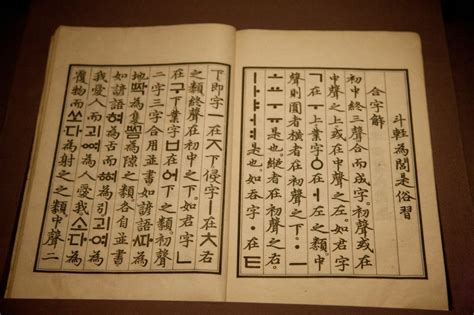 斗輕為閭是俗習
合字解
初中終三聲合而成字。初聲或在
中聲之上或在中聲之左。如君字
ㄱ在ㅜ上業字ㆁ在ㅓ左之類。中
聲則圓者橫者在初聲之下ㆍㅡ
ㅗㅛㅜㅠ是也。縱者在初聲之右
ㅣㅏㅑㅓㅕ是也。如呑字ㆍ在ㅌ
下即字ㅡ在ㅈ下侵字ㅣ在ㅊ右
之類。終聲在初中之下。如君字ㄴ
在구下業字ㅂ在어下之類。初聲
二字三字合用並書如諺語ᄯᅡ為
地ᄧᅡᆨ為隻ᄢᅳᆷ為隙之類。各自並書
如諺語혀為舌而ᅘᅧ為引괴여為
我愛人而괴ᅇᅧ為人愛我소다為
覆物而쏘다為射之之類。中聲二